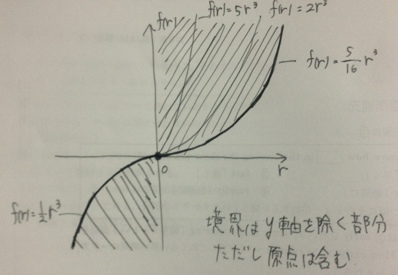 f(r)
f(r)=5r³
f(r)=2r³
f(r)=5/16 r³
0
r
f(r)=½r³
境界は y軸を除く部分
ただし 原点は含む